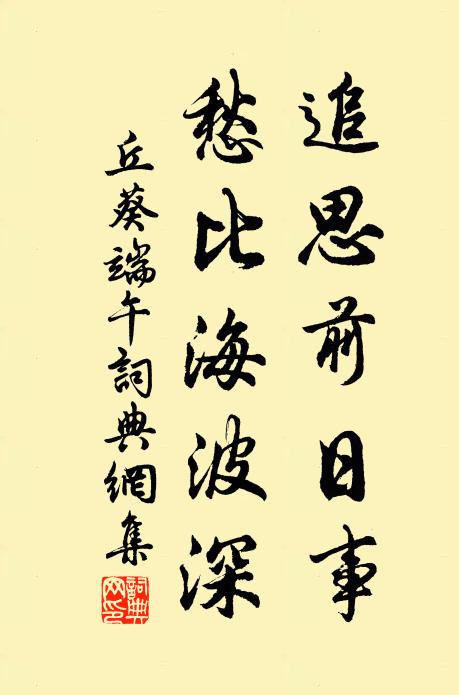 追思前日事
愁比海波深
丘葵端午詞典網集
詞典网印